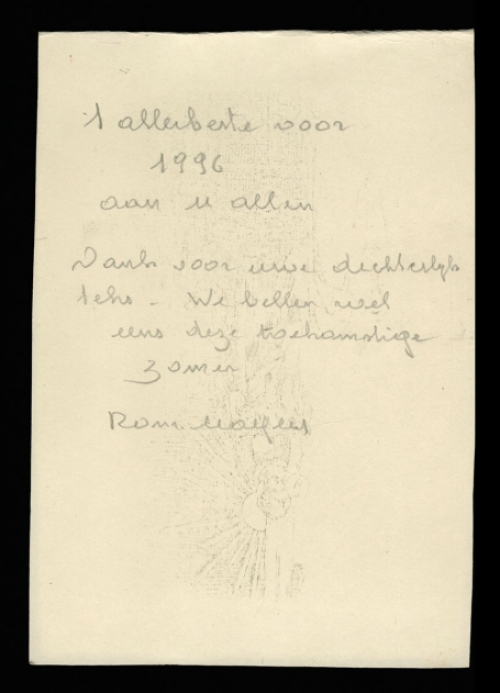 't allerbeste voor
1996
aan u allen
Dank voor uwe dichterlijke
teks - We bellen wel
eens deze toekomstige
zomer
Rom